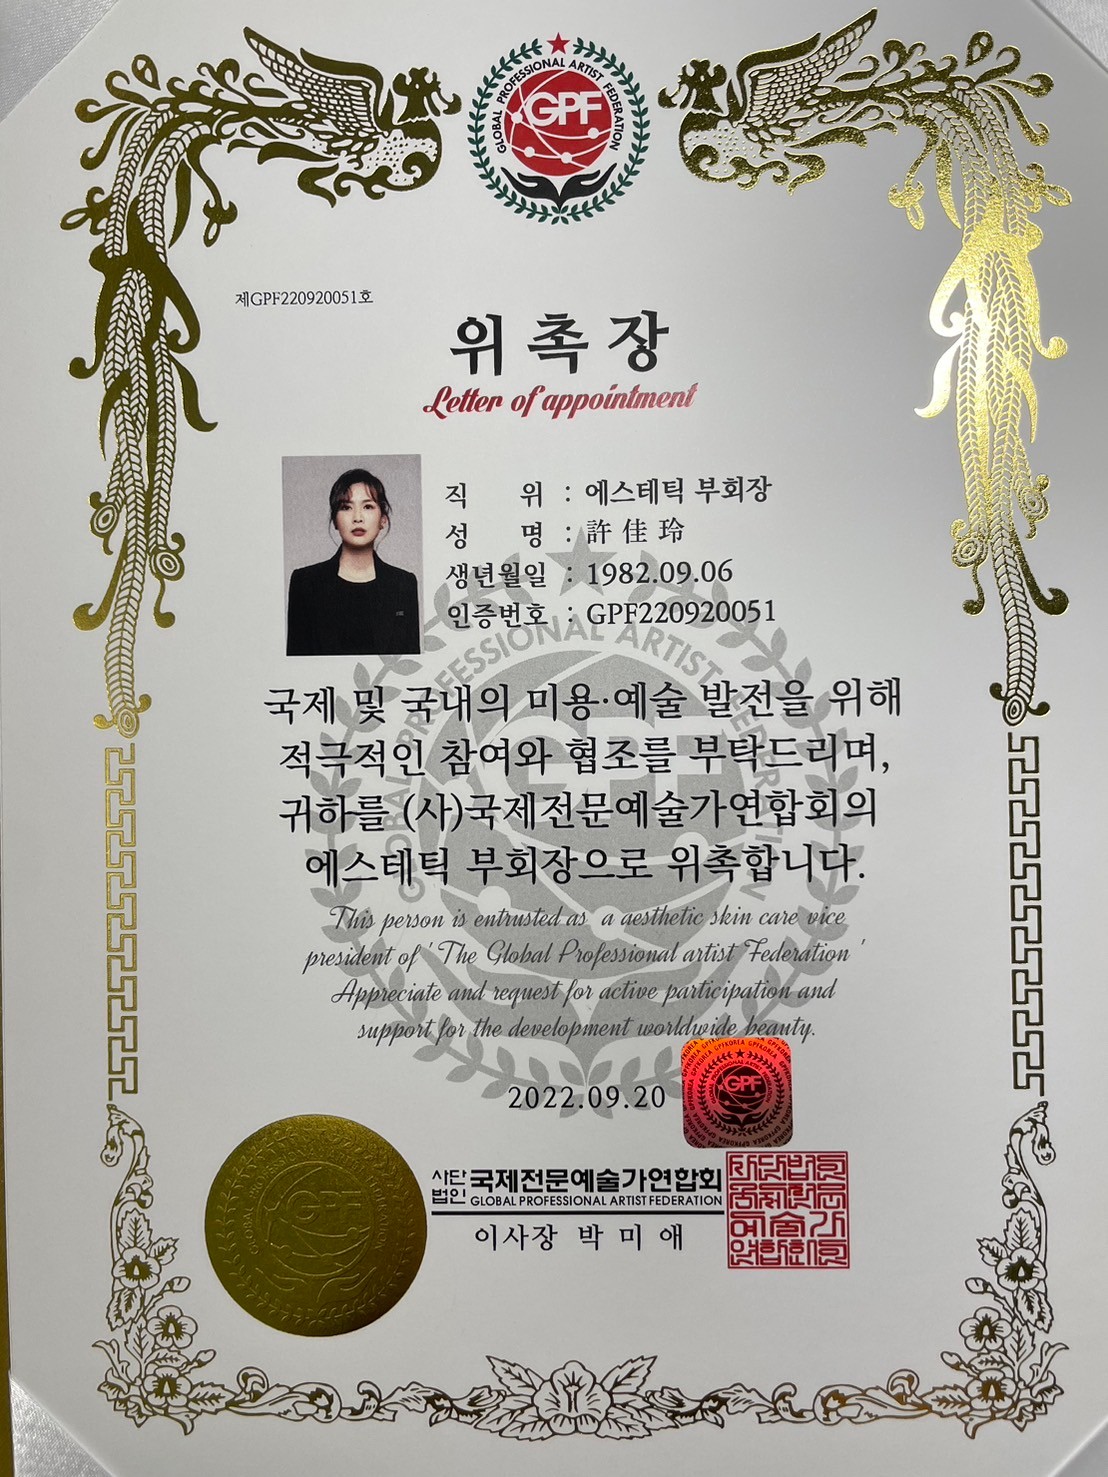 GLOBAL PROFESSIONAL ARTIST FEDERATION
GPF
제GPF220920051호
위촉장
Letter of appointment
직 위 : 에스테틱 부회장
성 명 : 許佳玲
생년월일 : 1982.09.06
인증번호 : GPF220920051
국제 및 국내의 미용·예술 발전을 위해
적극적인 참여와 협조를 부탁드리며,
귀하를 (사)국제전문예술가연합회의
에스테틱 부회장으로 위촉합니다.
This person is entrusted as a aesthetic skin care vice
president of 'The Global Professional artist Federation'
Appreciate and request for active participation and
support for the development worldwide beauty.
2022.09.20
GPF
사단법인 국제전문예술가연합회
GLOBAL PROFESSIONAL ARTIST FEDERATION
이사장 박미애